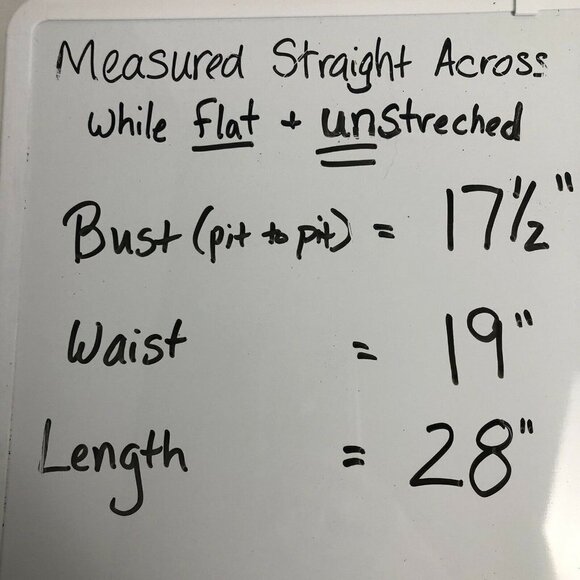 Measured Straight Across
while flat + unstreched
Bust (pit to pit) = 17½"
Waist = 19"
Length = 28"